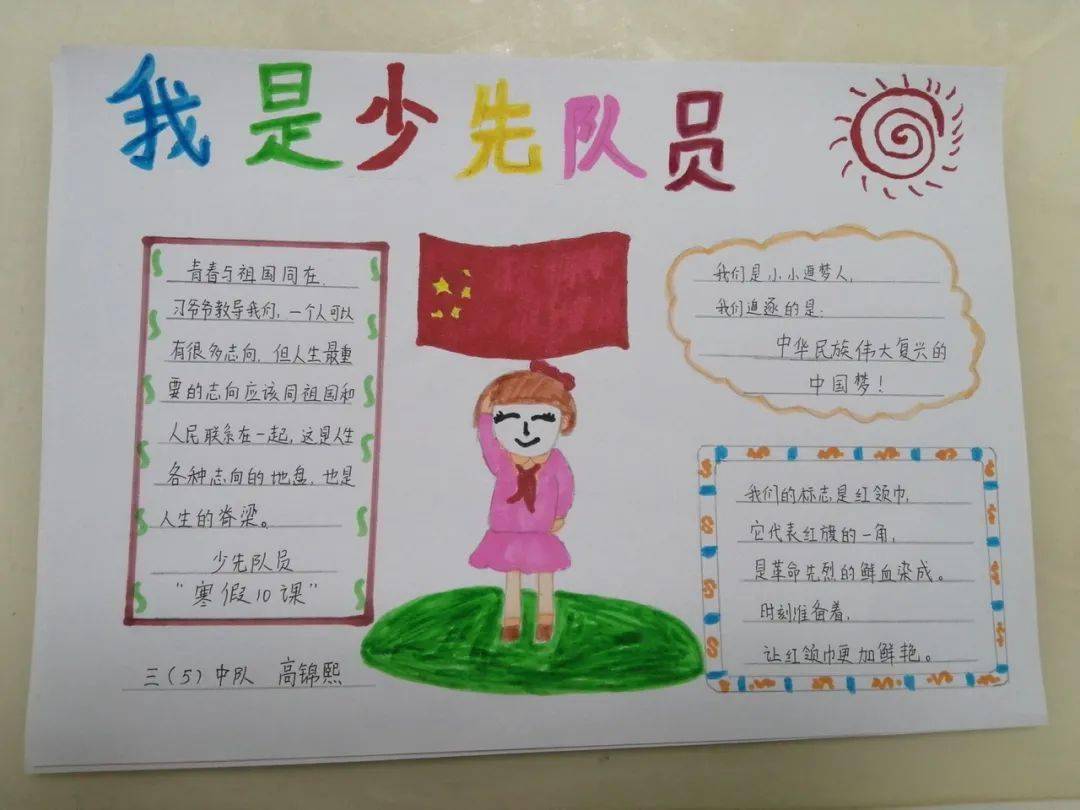 我是少先队员
青春与祖国同在,
习爷爷教导我们,一个人可以
有很多志向,但人生最重
要的志向应该同祖国和
人民联系在一起,这是人生
各种志向的地盘,也是
人生的脊梁。
少先队员
"寒假10课"
三(5)中队 高锦熙
我们是小小追梦人,
我们追逐的是:
中华民族伟大复兴的
中国梦!
我们的标志是红领巾,
它代表红旗的一角,
是革命先烈的鲜血染成。
时刻准备着,
让红领巾更加鲜艳。